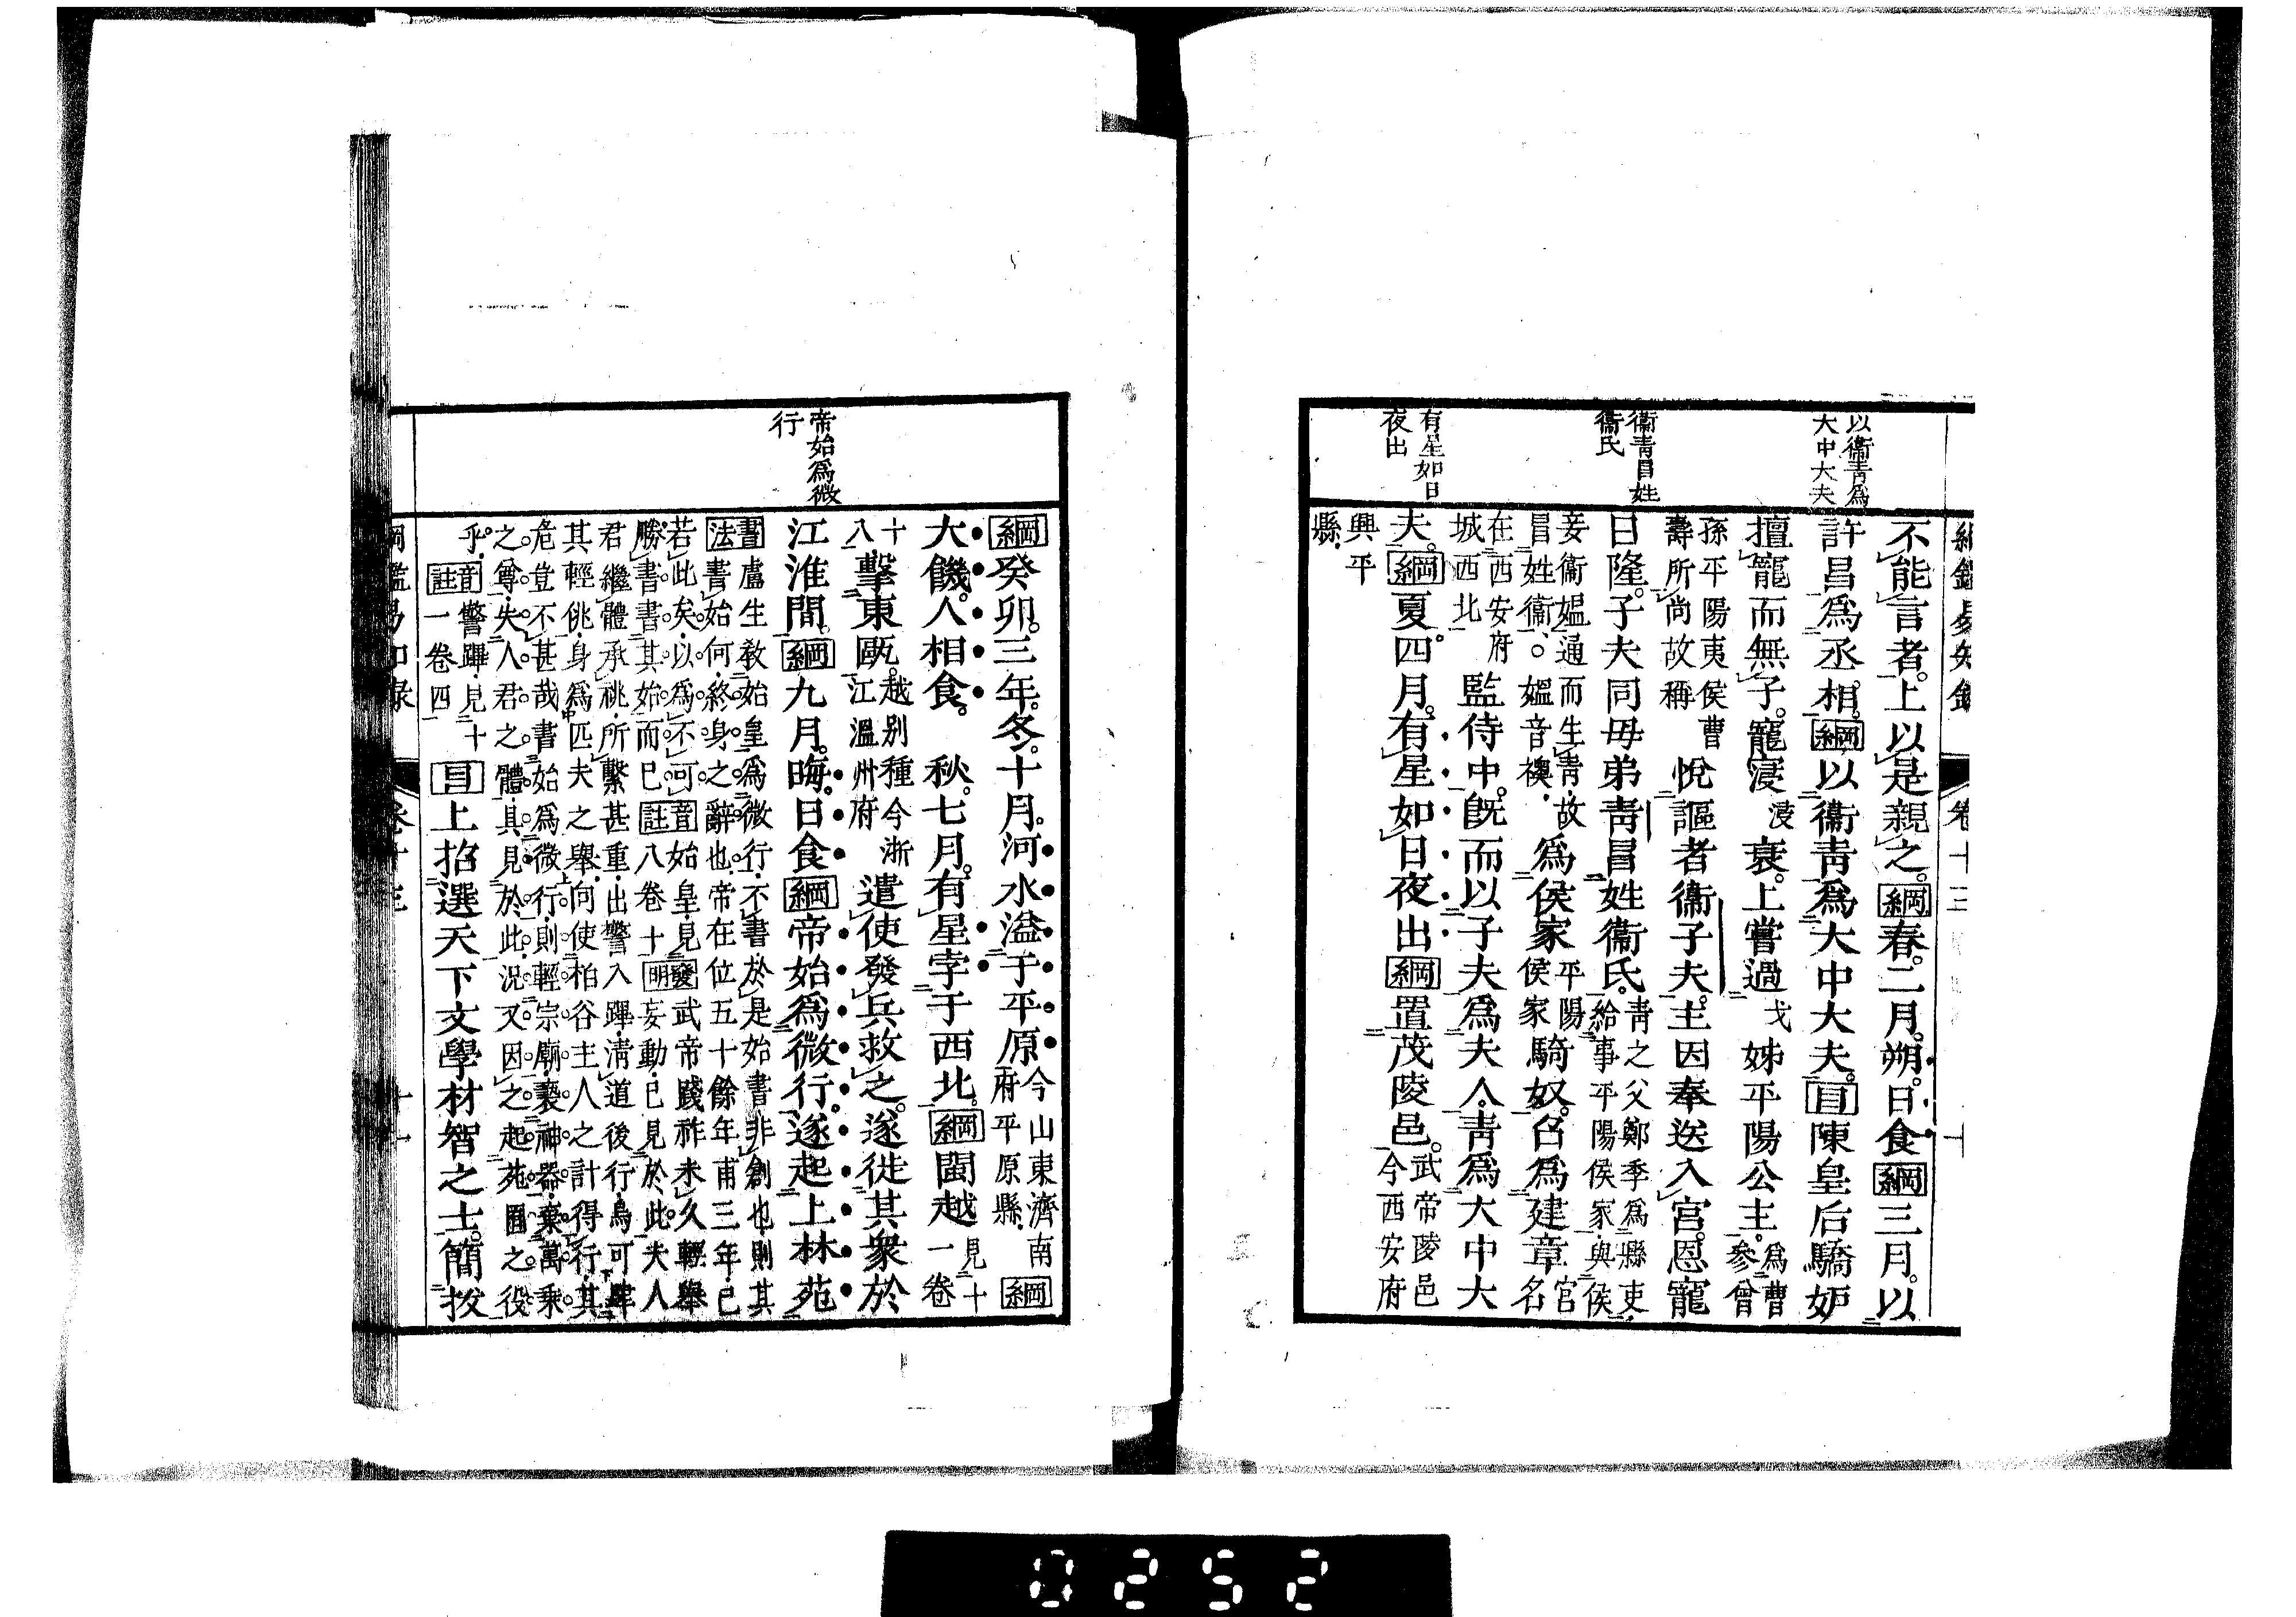 綱鑑易知錄 卷十三
以衞青爲
大中大夫
衞青冐姓
衞氏
有星如日
夜出
不能言者。上以是親之。綱春。二月。朔。日食綱三月。以
許昌爲丞相。綱以衞青爲大中大夫。目陳皇后驕妒
擅寵而無子。寵寖浸衰。上嘗過戈姊平陽公主。爲曹參曾
孫平陽夷侯曹壽所尚故稱悅謳者衞子夫。主因奉送入宮。恩寵
日隆。子夫同母弟青冐姓衞氏。青之父鄭季爲縣吏給事平陽侯家與侯
妾衞媼通而生青故昌姓衞○媼音襖爲侯家平陽侯家騎奴。召爲建章宮名
在西安府城西北監侍中。既而以子夫爲夫人。青爲大中大
夫。綱夏四月。有星如日夜出綱置茂陵邑。武帝陵邑今西安府
興平縣
帝始爲微
行
綱癸卯。三年。冬。十月。河水溢于平原今山東濟南府平原縣綱
大饑。人相食。 秋。七月。有星孛于西北。綱閩越見十一卷
十八擊東甌。越别種今浙江溫州府遣使發兵救之。遂徙其衆於
江淮間。綱九月。晦。日食綱帝始爲微行。遂起上林苑
書法盧生教始皇爲微行不書於是始書非創也則其
書始何終身之辭也帝在位五十餘年甫三年已
若此矣以爲不可
勝書書其始而已音註始皇見八卷十發明武帝踐祚未久輕舉妄動已見於此夫人
君繼體承祧所繫甚重出警入蹕淸道後行烏可肆
其輕佻身爲匹夫之舉向使柏谷主人之計得行其
危豈不甚哉書始爲微行則輕宗廟褻神器棄萬乘
之尊失人君之體具見於此況又因之起苑囿之役
乎音註警蹕見十一卷四目上招選天下文學材智之士。簡拔